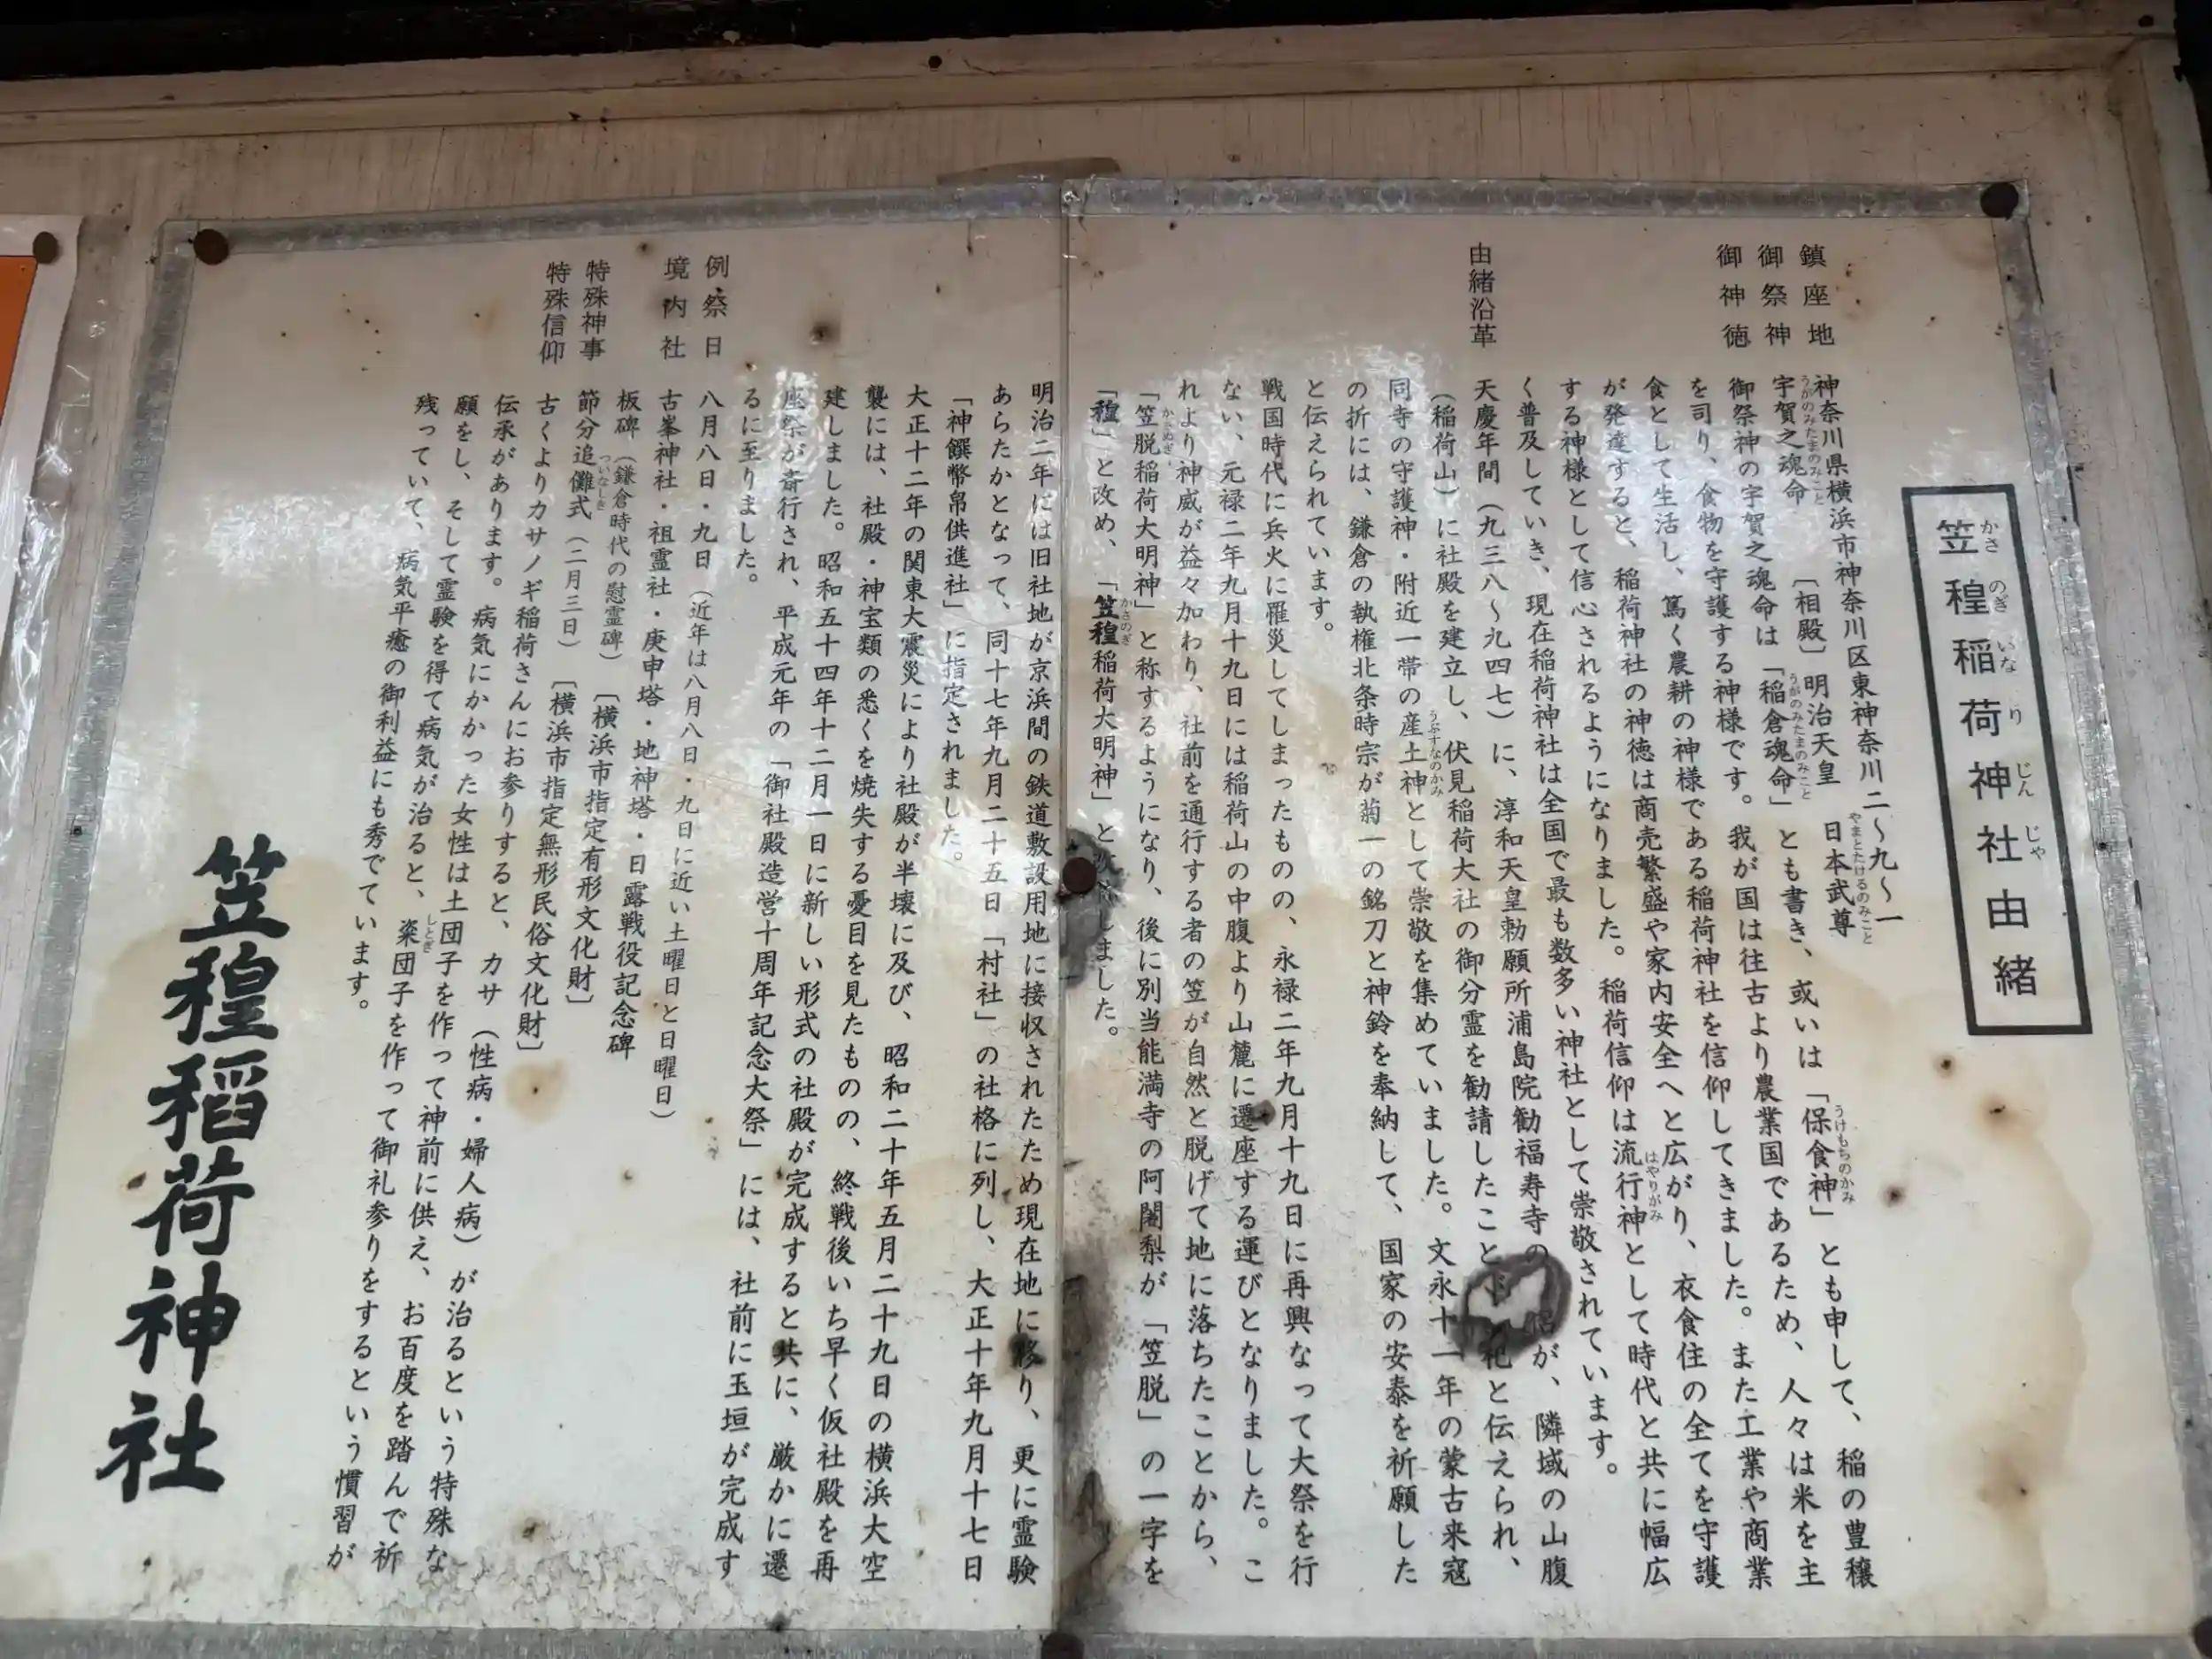 笠䅣稲荷神社由緒
かさのぎいなりじんじゃ
鎮座地 神奈川県横浜市神奈川区東神奈川二〜九〜一
御祭神 宇賀之魂命 〔相殿〕明治天皇 日本武尊
うがのみたまのみこと やまとたけるのみこと
御神徳 御祭神の宇賀之魂命は「稲倉魂命」とも書き、或いは「保食神」とも申して、稲の豊穣
うがのみたまのみこと うけもちのかみ
を司り、食物を守護する神様です。我が国は往古より農業国であるため、人々は米を主
食として生活し、篤く農耕の神様である稲荷神社を信仰してきました。また工業や商業
が発達すると、稲荷神社の神徳は商売繁盛や家内安全へと広がり、衣食住の全てを守護
する神様として信心されるようになりました。稲荷信仰は流行神として時代と共に幅広
はやりがみ
く普及していき、現在稲荷神社は全国で最も数多い神社として崇敬されています。
由緒沿革 天慶年間（九三八〜九四七）に、淳和天皇勅願所浦島院勧福寿寺の が、隣域の山腹
（稲荷山）に社殿を建立し、伏見稲荷大社の御分霊を勧請したこと 祀と伝えられ、
同寺の守護神・附近一帯の産土神として崇敬を集めていました。文永十一年の蒙古来寇
うぶすなのかみ
の折には、鎌倉の執権北条時宗が菊一の銘刀と神鈴を奉納して、国家の安泰を祈願した
と伝えられています。
戦国時代に兵火に罹災してしまったものの、永禄二年九月十九日に再興なって大祭を行
ない、元禄二年九月十九日には稲荷山の中腹より山麓に遷座する運びとなりました。こ
れより神威が益々加わり、社前を通行する者の笠が自然と脱げて地に落ちたことから、
「笠脱稲荷大明神」と称するようになり、後に別当能満寺の阿闍梨が「笠脱」の一字を
かさぬぎ
「䅣」と改め、「笠䅣稲荷大明神」と しました。
かさのぎ
明治二年には旧社地が京浜間の鉄道敷設用地に接収されたため現在地に移り、更に霊験
あらたかとなって、同十七年九月二十五日「村社」の社格に列し、大正十年九月十七日
「神饌幣帛供進社」に指定されました。
大正十二年の関東大震災により社殿が半壊に及び、昭和二十年五月二十九日の横浜大空
襲には、社殿・神宝類の悉くを焼失する憂目を見たものの、終戦後いち早く仮社殿を再
建しました。昭和五十四年十二月一日に新しい形式の社殿が完成すると共に、厳かに遷
座祭が斎行され、平成元年の「御社殿造営十周年記念大祭」には、社前に玉垣が完成す
るに至りました。
例祭日 八月八日・九日（近年は八月八日・九日に近い土曜日と日曜日）
境内社 古峯神社・祖霊社・庚申塔・地神塔・日露戦役記念碑
板碑（鎌倉時代の慰霊碑）〔横浜市指定有形文化財〕
特殊神事 節分追儺式（二月三日）〔横浜市指定無形民俗文化財〕
ついなしき
特殊信仰 古くよりカサノギ稲荷さんにお参りすると、カサ（性病・婦人病）が治るという特殊な
伝承があります。病気にかかった女性は土団子を作って神前に供え、お百度を踏んで祈
願をし、そして霊験を得て病気が治ると、粢団子を作って御礼参りをするという慣習が
しとぎ
残っていて、病気平癒の御利益にも秀でています。
笠䅣稲荷神社